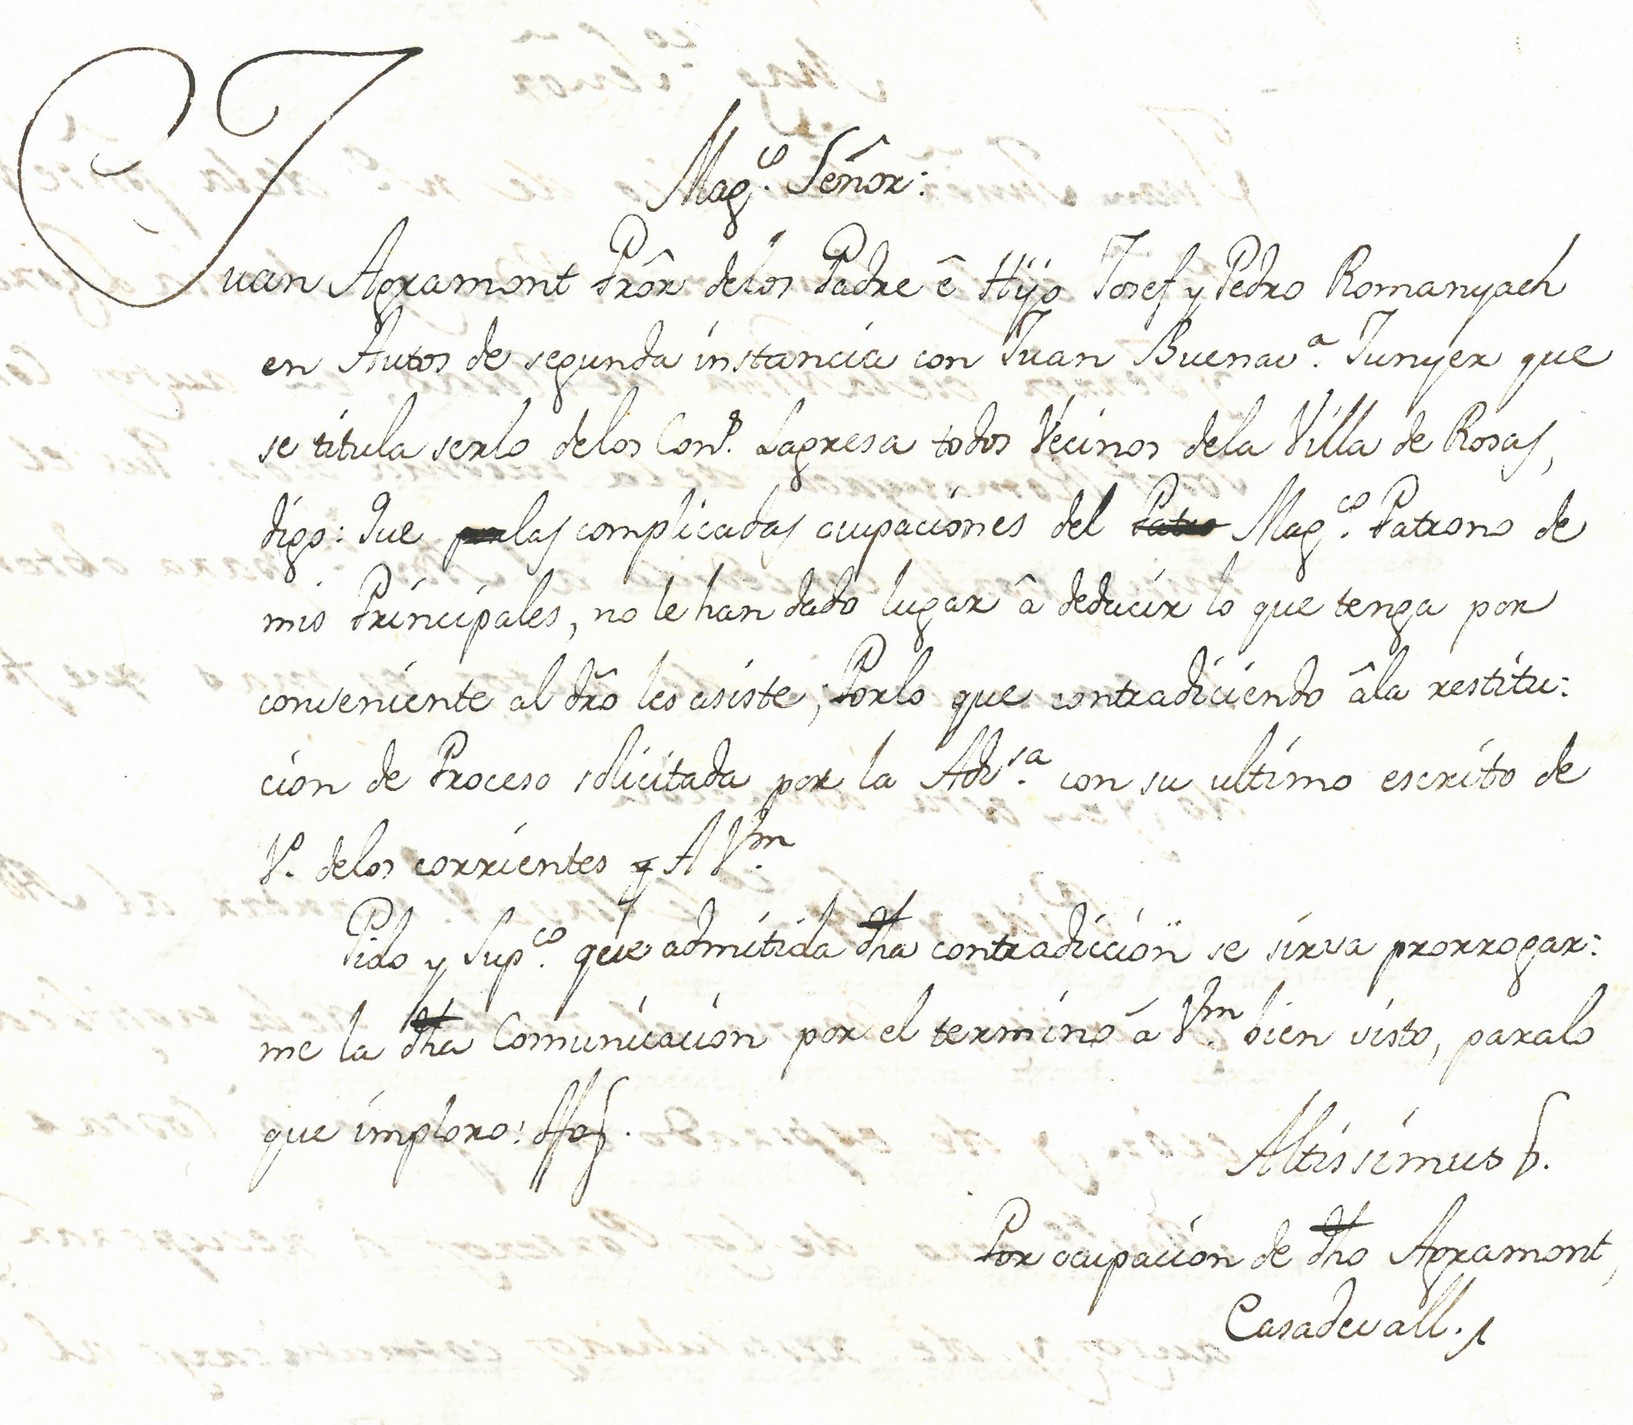 Mag.co Señor:
Juan Agramont Prôr delos Padre ê Hijo Josef y Pedro Romanyach
en Autos de segunda instancia con Juan Buenav.a Junyer que
se titula serlo delos Con.s Lagresa todos Vecinos dela Villa de Rosas,
digo: Que las complicadas ocupaciones del Mag.co Patrono de
mis Principales, no le han dado lugar â deducir lo que tenga por
conveniente al dr̃o les asiste; Porlo que contradiciendo âla restitu:
cion de Proceso solicitada por la Adv.sa con su ultimo escrito de
V.o delos corrientes A V.m
Pido y Sup.co que admitida dha contradiccion se sirva prorrogar:
me la dha Comunicacion por el termino â V.m bien visto, paralo
que imploro:
Altissimus
Por ocupacion de dho Agramont,
Casadevall.